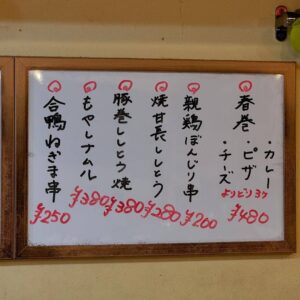 春巻 ・カレー
・ピザ
・チーズ
よりどり3ケ
¥480
親鶏ぼんじり串
¥200
焼甘長ししとう
¥280
豚巻ししとう焼
¥380
もやしナムル
¥380
合鴨ねぎま串
¥250